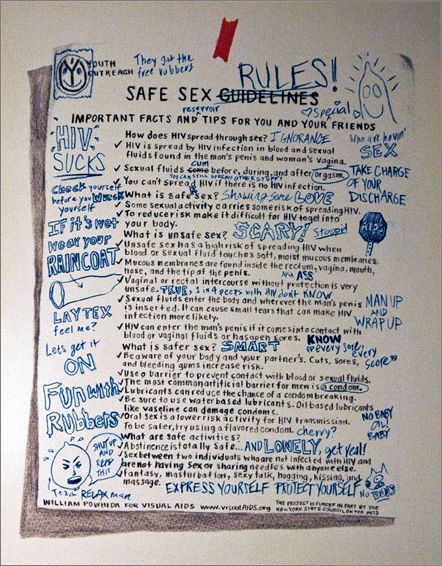 YOUTH
OUTREACH
They got the
free rubbers
SAFE SEX GUIDELINES RULES!
reservoir
♡special
IMPORTANT FACTS AND TIPS FOR YOU AND YOUR FRIENDS
HIV
SUCKS
Check yourself
before you wreck
yourself
IF it's wet
wear your
RAINCOAT
LAYTEX
feel me?
Let's get it
ON
Fun with
Rubbers
SHUT UP
AND
KEEP
THIS
Yeah RELAX man
How does HIV spread through sex? IGNORANCE
✓ HIV is spread by HIV infection in blood and sexual
fluids found in the man's penis and woman's vagina.
cum
✓ Sexual fluids come before, during, and after orgasm.
YOU CAN STILL SPREAD OTHER STDS!!!
✓ You can't spread HIV if there is no HIV infection.
What is safe sex? Showing some LOVE
✓ Some sexual activity carries some risk of spreading HIV.
✓ To reduce risk make it difficult for HIV to get into
your body.
What is unsafe sex? SCARY! Stupid
✓ Unsafe sex has a high risk of spreading HIV when
blood or Sexual fluid touches soft, moist mucous membranes.
✓ Mucous membranes are found inside the rectum, vagina, mouth,
nose, and the tip of the penis.
ASS
✓ Vaginal or rectal intercourse without protection is very
unsafe. TRUE, 1 in 4 peeps with AIDS don't KNOW
✓ Sexual fluids enter the body and wherever the man's penis
is inserted. It can cause small tears that can make HIV
infection more likely.
✓ HIV can enter the man's penis if it comes into contact with
blood or vaginal fluids or has open sores. KNOW
What is safer sex? SMART
✓ Be aware of your body and your partner's. Cuts, sores,
and bleeding gums increase risk.
✓ Use a barrier to prevent contact with blood or sexual fluids.
✓ The most common artificial barrier for men is a condom.
✓ Lubricants can reduce the chance of a condom breaking.
✓ Be sure to use water based lubricants. Oil based lubricants
like vaseline can damage condoms.
✓ Oral sex is a lower risk activity for HIV transmission.
To be safer, try using a flavored condom. cherry?
What are safe activities?
✓ Abstinence is totally safe... AND LONELY, get real!
✓ Sex between two individuals who are not infected with HIV and
are not having sex or sharing needles with anyone else.
✓ Fantasy, masturbation, sexy talk, hugging, kissing, and
massage. EXPRESS YOURSELF PROTECT YOURSELF
Who are havin'
SEX
TAKE CHARGE
OF YOUR
DISCHARGE
AIDS
MAN UP
AND
WRAP UP
every sore,
every
score
NO BABY
OIL
BABY
NO
WILLIAM POWHIDA FOR VISUAL AIDS www.VISUALAIDS.ORG
THIS PROJECT IS FUNDED IN PART BY THE
NEW YORK STATE COUNCIL ON THE ARTS